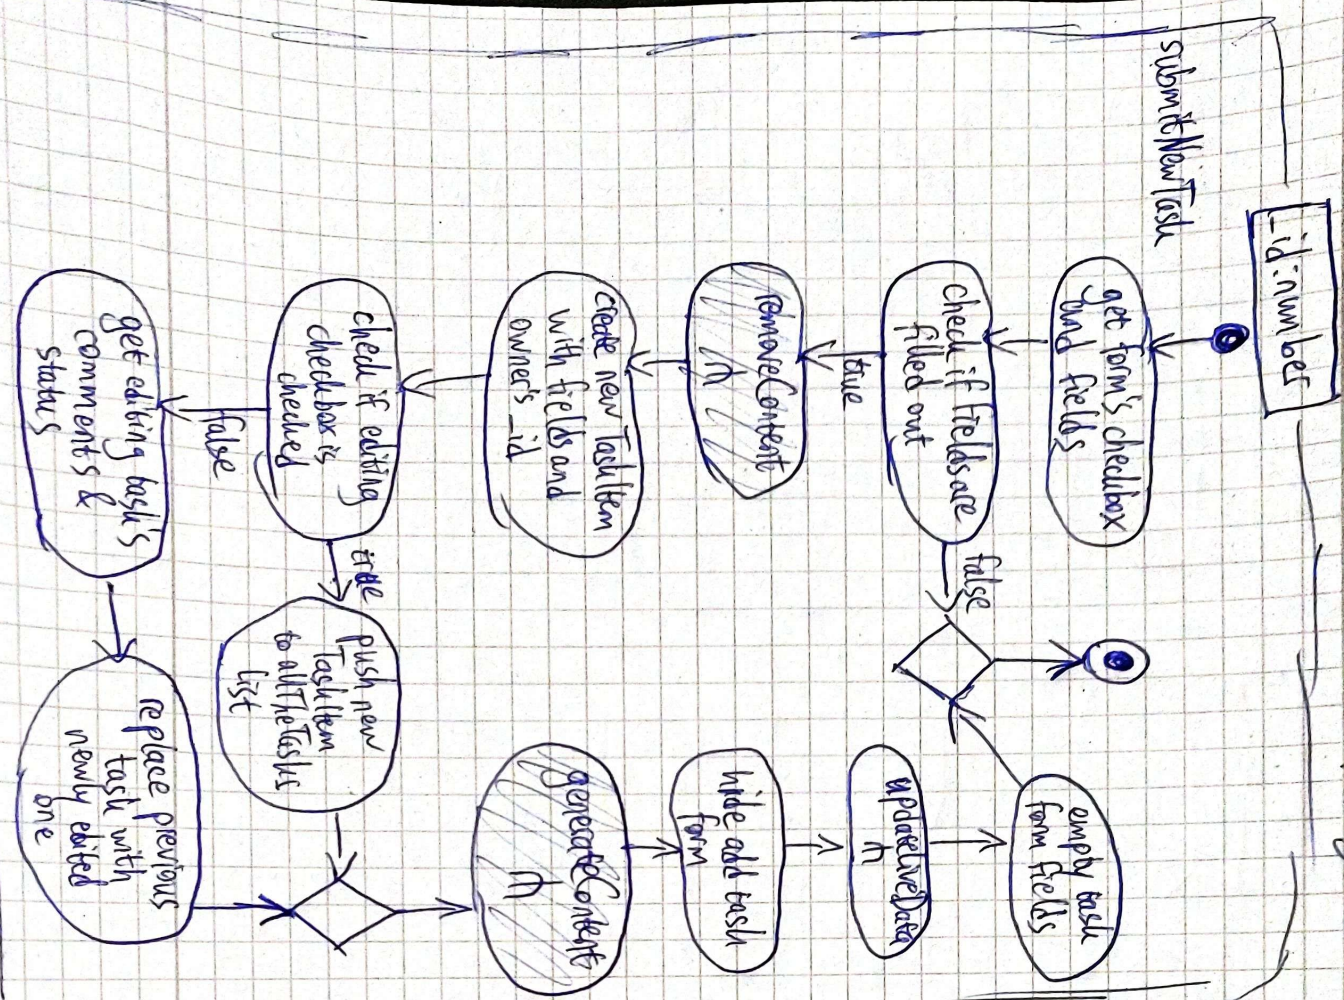 _id:number
submitNewTask
get form's checkbox
and fields
check if fields are
filled out
false
true
removeContent
create new TaskItem
with fields and
owner's_id
check if editing
checkbox is
checked
true
push new
TaskItem
to allTheTasks
list
false
get editing task's
comments &
status
replace previous
task with
newly edited
one
generateContent
hide add task
form
updateLiveData
empty task
form fields